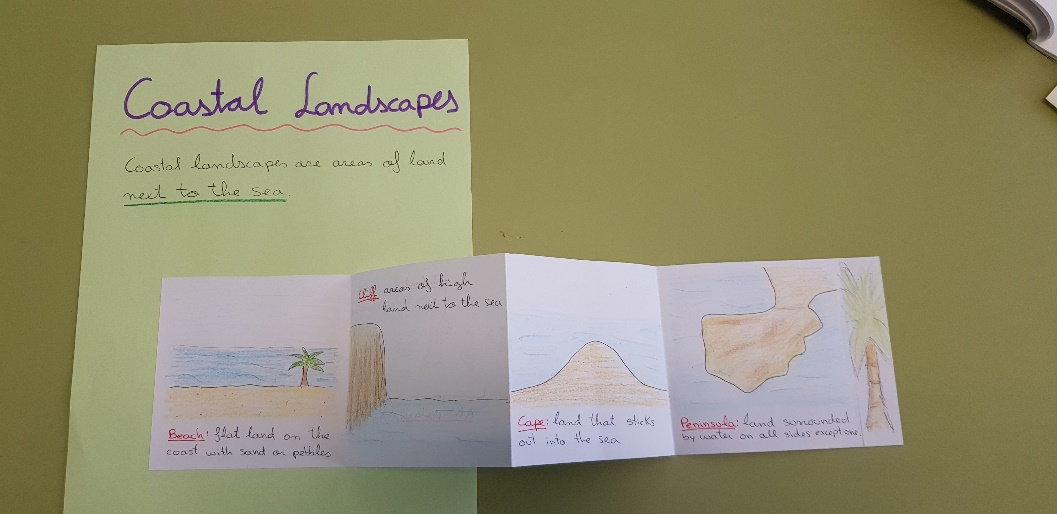 Coastal Landscapes
Coastal landscapes are areas of land
next to the sea
Beach: flat land on the
coast with sand or pebbles
Cliff: areas of high
land next to the sea
Cape: land that sticks
out into the sea
Peninsula: land surrounded
by water on all sides except one.